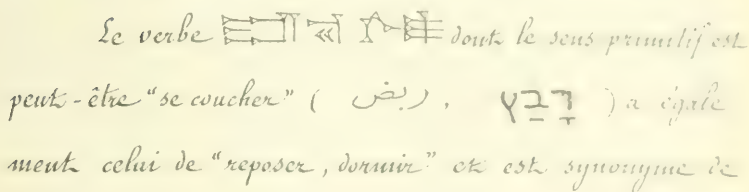 Le verbe dont le sens primitif est
peut-être "se coucher" ( ربض , רָבַץ ) a égale
ment celui de "reposer, dormir" et est synonyme de